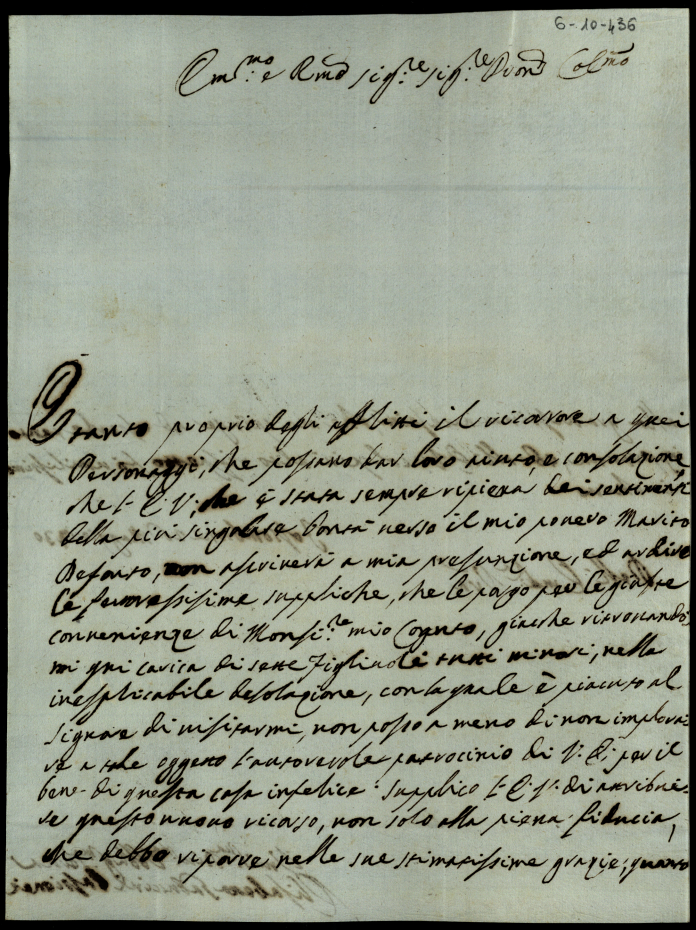 6-10-436
Em.mo e Rmo sig.re sig.re Pron Colmo
È tanto proprio degli afflitti il ricorrere a quei
Personaggi, che possano dar loro aiuto, e consolazione
che l'E.V., che è stata sempre ripiena dei sentimenti
della più singolare bontà verso il mio povero Marito
Defonto, non ascriverà a mia presunzione, ed ardire
le suppliche, che le porgo per le giuste
convenienze di Monsi.re mio Cognato, giacche ritrovando
mi qui carica di sette Figliuoli tutti minori, nella
inesplicabile desolazione, con la quale è piaciuto al
Signore di visitarmi, non posso a meno di non implora
re a tale oggetto l'autorevole patrocinio di V.E. per il
bene di questa casa infelice: supplico l'E.V. di attribui
re questo nuovo ricorso, non solo alla piena fiducia,
che debbo riporre nelle sue stimatissime grazie, quanto